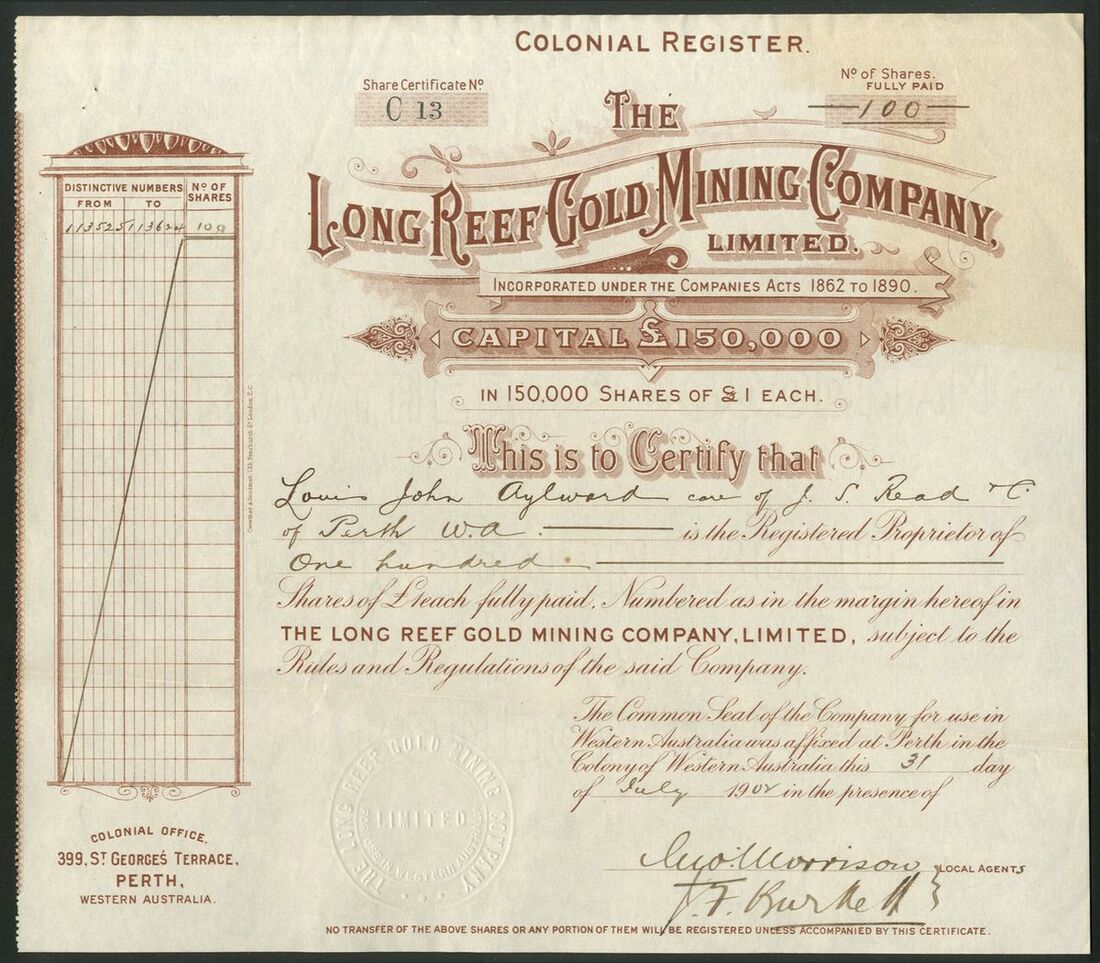 COLONIAL REGISTER.
Share Certificate No
C 13
No of Shares.
FULLY PAID
100
THE
LONG REEF GOLD MINING COMPANY,
LIMITED.
INCORPORATED UNDER THE COMPANIES ACTS 1862 TO 1890.
CAPITAL £150,000
IN 150,000 SHARES OF £1 EACH.
This is to Certify that
Louis John Aylward care of J. S. Read & C.
of Perth W.A. is the Registered Proprietor of
One hundred
Shares of £1 each fully paid. Numbered as in the margin hereof in
THE LONG REEF GOLD MINING COMPANY, LIMITED, subject to the
Rules and Regulations of the said Company.
The Common Seal of the Company for use in
Western Australia was affixed at Perth in the
Colony of Western Australia this 31 day
of July 1902 in the presence of
Morrison
J. F. Burkett
LOCAL AGENTS
NO TRANSFER OF THE ABOVE SHARES OR ANY PORTION OF THEM WILL BE REGISTERED UNLESS ACCOMPANIED BY THIS CERTIFICATE.
DISTINCTIVE NUMBERS
FROM TO
No OF SHARES
113525 113624 100
COLONIAL OFFICE,
399, ST GEORGE'S TERRACE,
PERTH,
WESTERN AUSTRALIA.
THE LONG REEF GOLD MINING COMPANY
LIMITED
FOR USE IN WESTERN AUSTRALIA